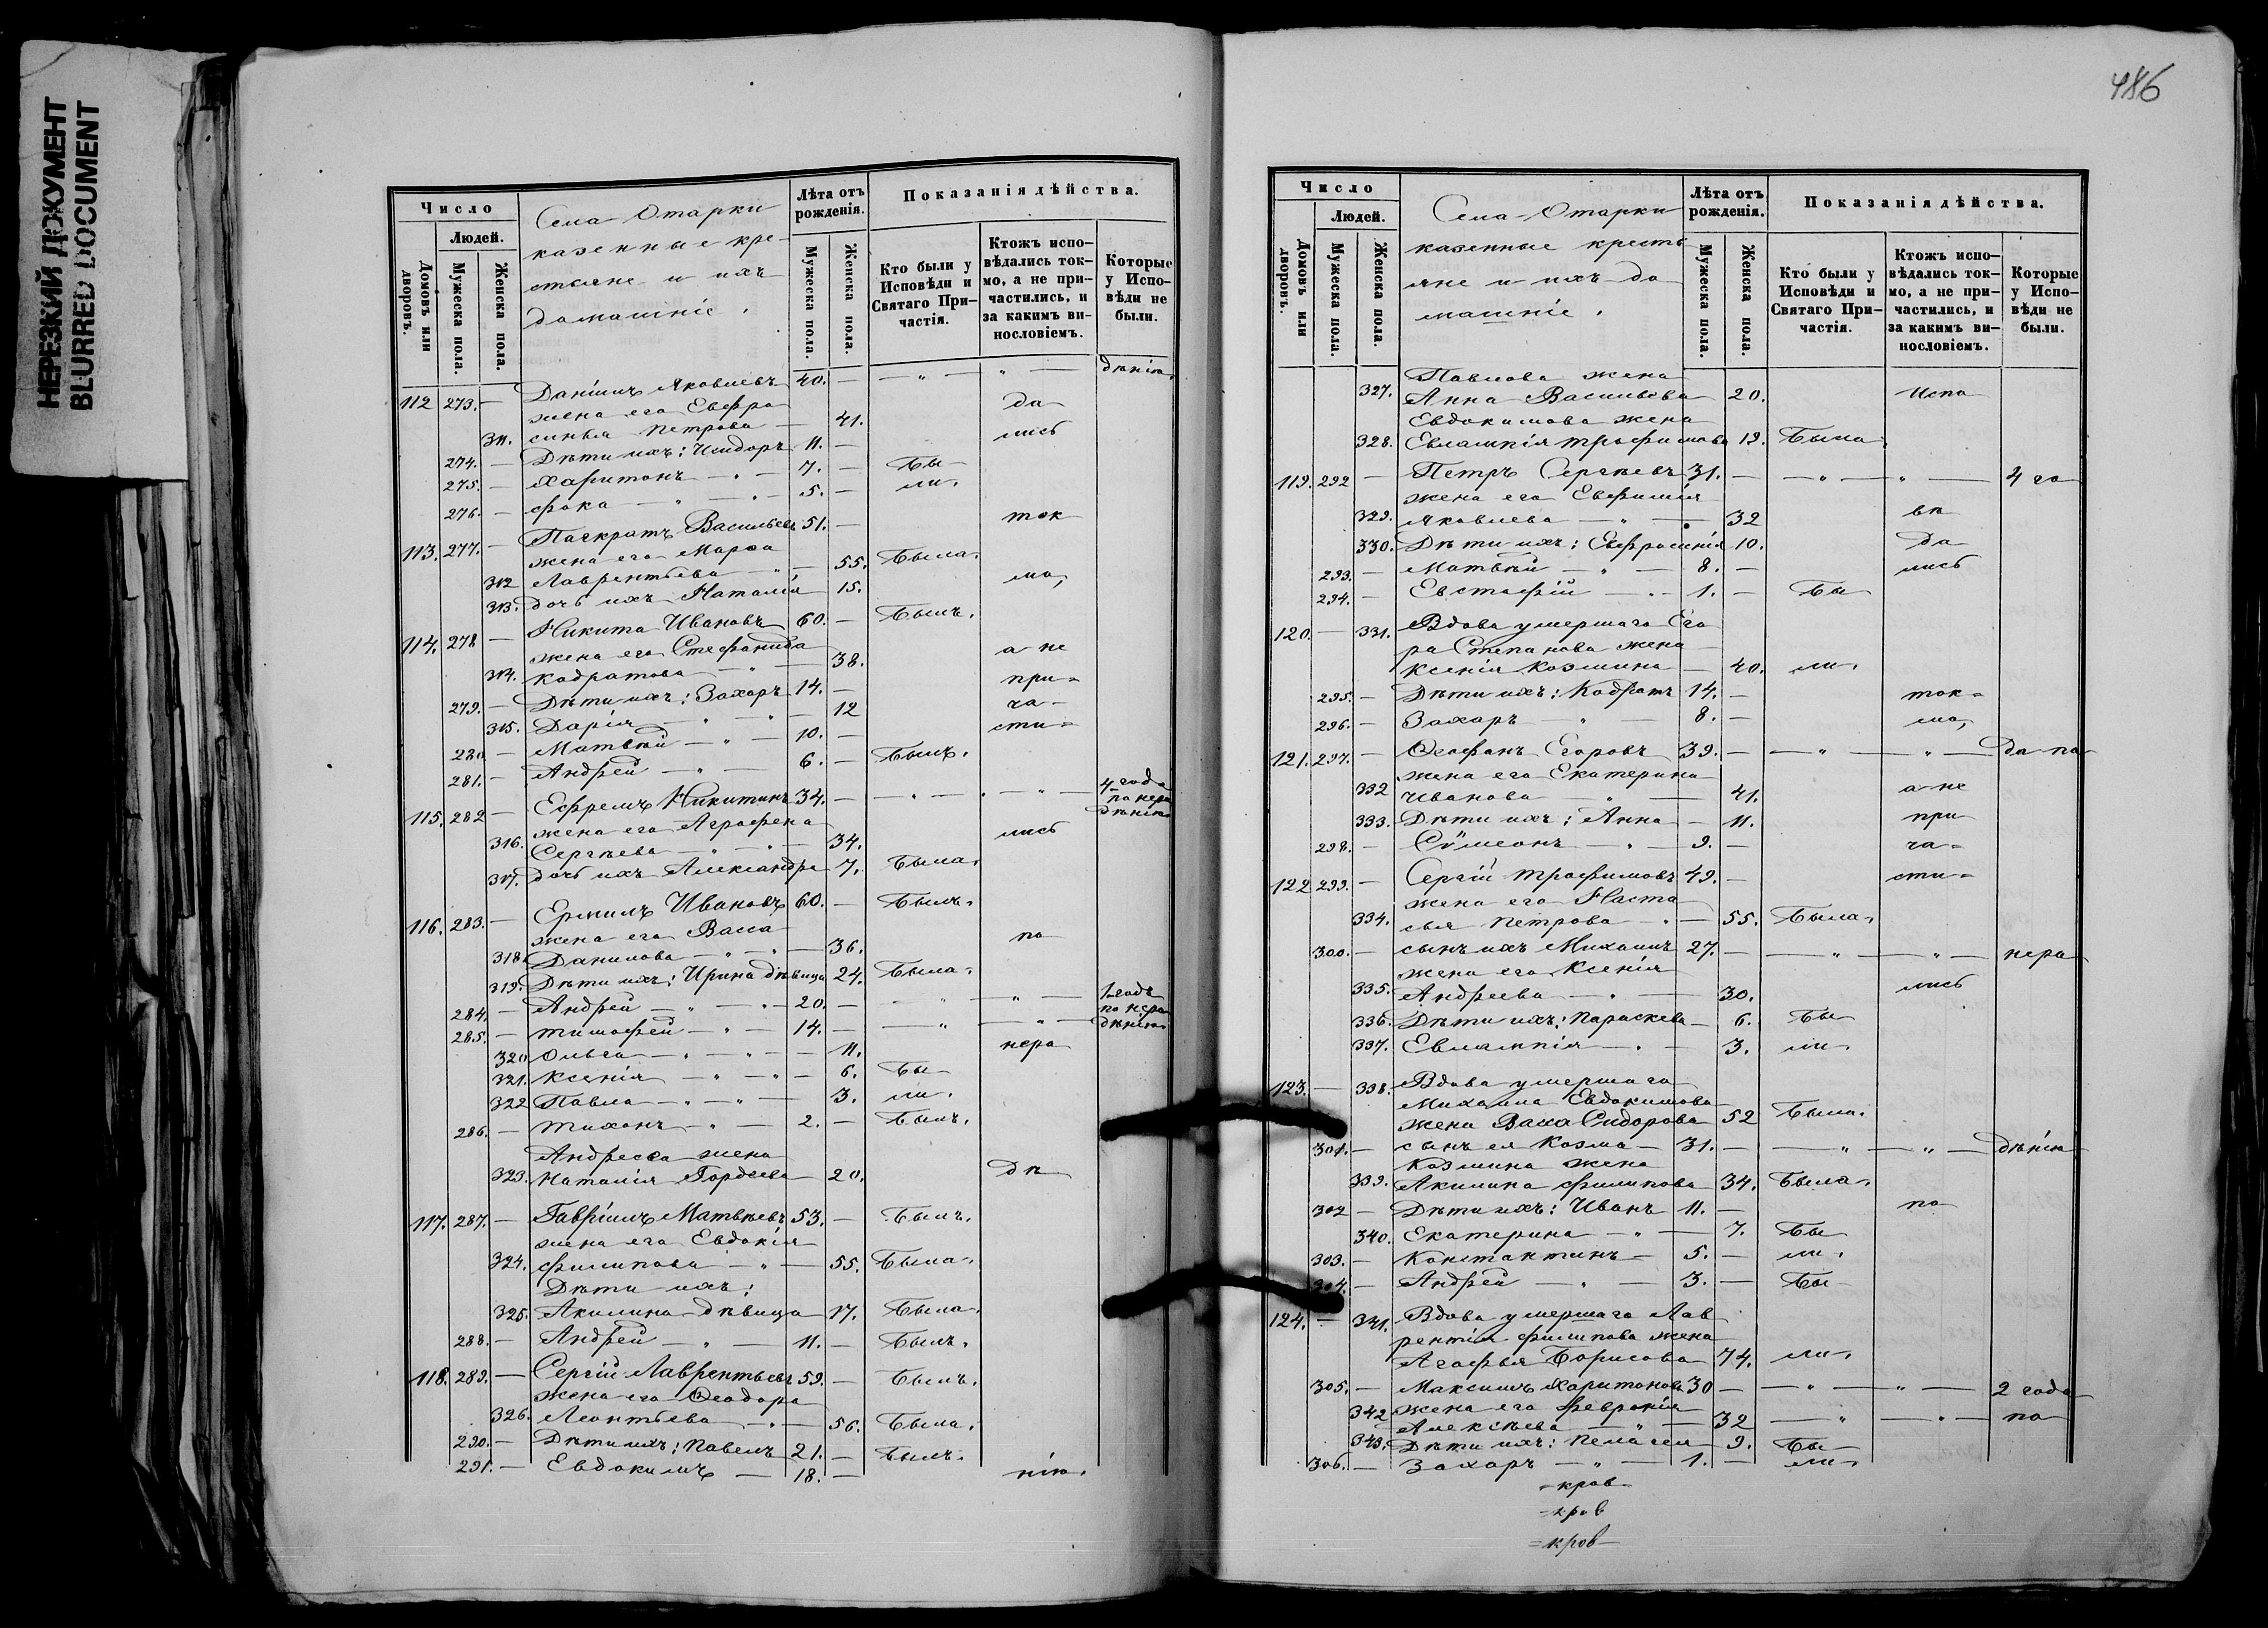 НЕРЕЗКИЙ ДОКУМЕНТ
BLURRED DOCUMENT
Число
Людей.
Домовъ или дворовъ.
Мужеска пола.
Женска пола.
Села Отарки
казенные кре-
стьяне и ихъ
домашніе.
Лѣта отъ рожденія.
Мужеска пола.
Женска пола.
Показанія дѣйства.
Кто были у Исповѣди и Святаго При-частія.
Ктожъ испо-вѣдались ток-мо, а не при-частились, и за какимъ ви-нословіемъ.
Которые у Испо-вѣди не были.
112 273. — Даніилъ Яковлевъ 40. — — „ — „ — дѣнію
жена его Евфро да
311. синья Петрова — 41.
274. — Дѣти ихъ: Исидоръ 11. — лись
275. — Харитонъ — „ — 7. — Бы
276. — Фока — „ — 5. — ли.
113. 277. — Панкратъ Васильевъ 51. — ток
жена его Марфа
312 Лаврентьева — „ — 55. Была.
313. дочь ихъ Наталія 15. мо,
114. 278 — Никита Ивановъ 60. — Былъ.
жена его Стефанида а не
314. Кодратова — „ — 38.
279. — Дѣти ихъ: Захаръ 14. — при-
315. Дарія — „ — „ — 12 ча-
280 — Матвѣй — „ — 10. — сти-
281. — Андрей — „ — 6. — Былъ.
115. 282 — Ефремъ Никитинъ 34. — — „ — „ — 4 года
по нера
дѣнію
жена его Агрофена
316. Сергѣева — „ — „ — 34. лись
317. дочь ихъ Александра 7. Была.
116. 283. — Ермилъ Ивановъ 60. — Былъ.
жена его Васса по
318. Данилова — „ — „ — 36.
319. Дѣти ихъ: Ирина дѣвица 24. Была.
284. — Андрей — „ — 20. — — „ — „ — 1 годъ
по нера
285. — Тимофей — „ — 14. — — „ — „ — дѣнію
320 Ольга — „ — „ — 11. нера
321. Ксенія — „ — „ — 6. Бы
322 Павла — „ — „ — 3. ли.
286. — Тихонъ — „ — 2. — Былъ.
Андреева жена
323. Наталія Гордеева — 20. дѣ
117. 287. — Гавріилъ Матвѣевъ 53. — Былъ.
жена его Евдокія
324. Филипова — „ — 55. Была.
Дѣти ихъ:
325. Акилина дѣвица 17. Была.
288. — Андрей — „ — 11. — Былъ.
118. 289. — Сергій Лаврентьевъ 59. — Былъ.
жена его Ѳеодора
326. Леонтьева — „ — 56. Была.
290. — Дѣти ихъ: Павелъ 21. — Былъ.
291. — Евдокимъ — 18. — нію.
486
Число
Людей.
Домовъ или дворовъ.
Мужеска пола.
Женска пола.
Села Отарки
казенные кресть
яне и ихъ до
машніе.
Лѣта отъ рожденія.
Мужеска пола.
Женска пола.
Показанія дѣйства.
Кто были у Исповѣди и Святаго При-частія.
Ктожъ испо-вѣдались ток-мо, а не при-частились, и за какимъ ви-нословіемъ.
Которые у Испо-вѣди не были.
Павлова жена
327. Анна Васильева 20. Испо
Евдокимова жена
328. Евлампія Трофимова 19. Была.
119. 292 — Петръ Сергѣевъ 31. — — „ — „ — 4 го
жена его Евфимія
329. Яковлева — „ — 32 вѣ
330. Дѣти ихъ: Евфросинія 10. да
293. — Матвѣй — „ — 8. — лись
294. — Евстафій — „ — 1. — Бы
120. — 331. Вдова умершаго Его
ра Степанова жена
Ксенія Козмина — 40. ли.
295. — Дѣти ихъ: Кодратъ 14. — ток-
296. — Захаръ — „ — 8. — мо,
121. 297. — Агафонъ Егоровъ 39. — — „ — „ — да по
жена его Екатерина
332 Иванова — „ — 41. а не
333. Дѣти ихъ: Анна — 11. при
298. — Сѷмеонъ — „ — 9. — ча-
122 299. — Сергій Трофимовъ 49. — сти-
жена его Наста
334. сья Петрова — „ — 55. Была.
300. — сынъ ихъ Михаилъ 27. — — „ — „ — нера
жена его Ксенія
335. Андреева — „ — 30. лись
336. Дѣти ихъ: Параскева — 6. Бы
337. Евлампія — „ — 3. ли.
123. — 338. Вдова умершаго
Михаила Евдокимова
жена Васса Сидорова 52 Была.
301. — сынъ ея Козма — 31. — — „ — „ — дѣнію
Козмина жена
339. Акилина Филипова 34. Была.
302 — Дѣти ихъ: Иванъ 11. — по
340. Екатерина — „ — 7. Бы
303. — Константинъ — 5. — ли.
304. — Андрей — „ — 3. — Бы
124. — 341. Вдова умершаго Лав
рентія Филипова жена
Агафья Борисова 74. ли.
305. — Максимъ Харитоновъ 30 — — „ — „ — 2 года
342 жена его Февронія
Алексѣева — „ — 32 — „ — „ — по
343. Дѣти ихъ: Пелагея 9. Бы
306. — Захаръ — „ — 1. — ли.